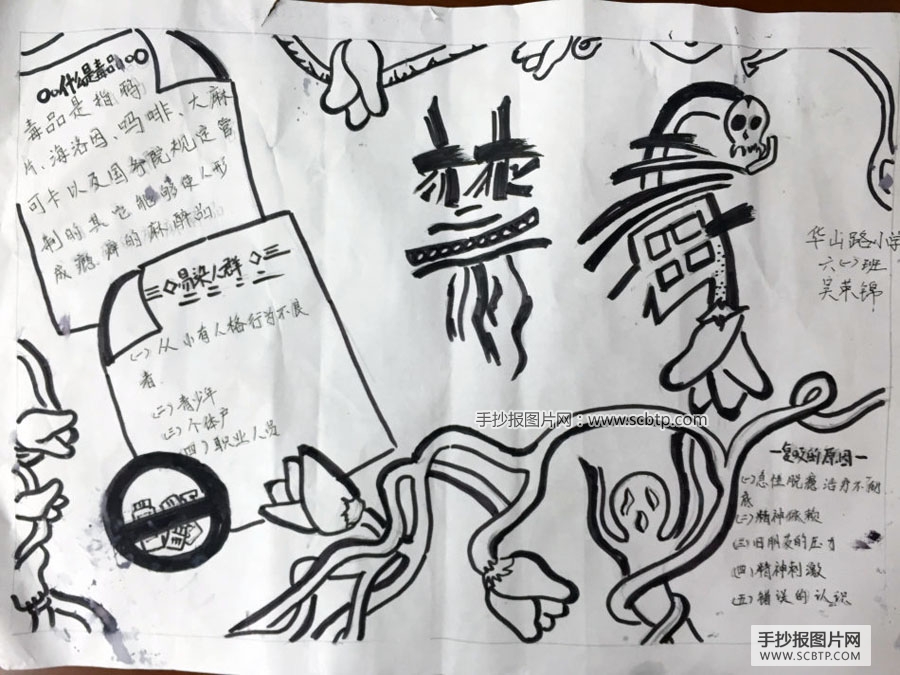 什么是毒品
毒品是指鸦
片、海洛因、吗啡、大麻
可卡以及国务院规定管
制的其它能够使人形
成瘾癖的麻醉品
易染人群
(一)从小有人格行为不良
者
(二)青少年
(三)个体户
(四)职业人员
华山路小学
六(一)班
吴荣锦
手抄报图片网：www.scbtp.com
复吸的原因
(一)急性脱瘾治疗不彻
底
(二)精神依赖
(三)旧朋友的压力
(四)精神刺激
(五)错误的认识
手抄报图片网
WWW.SCBTP.COM